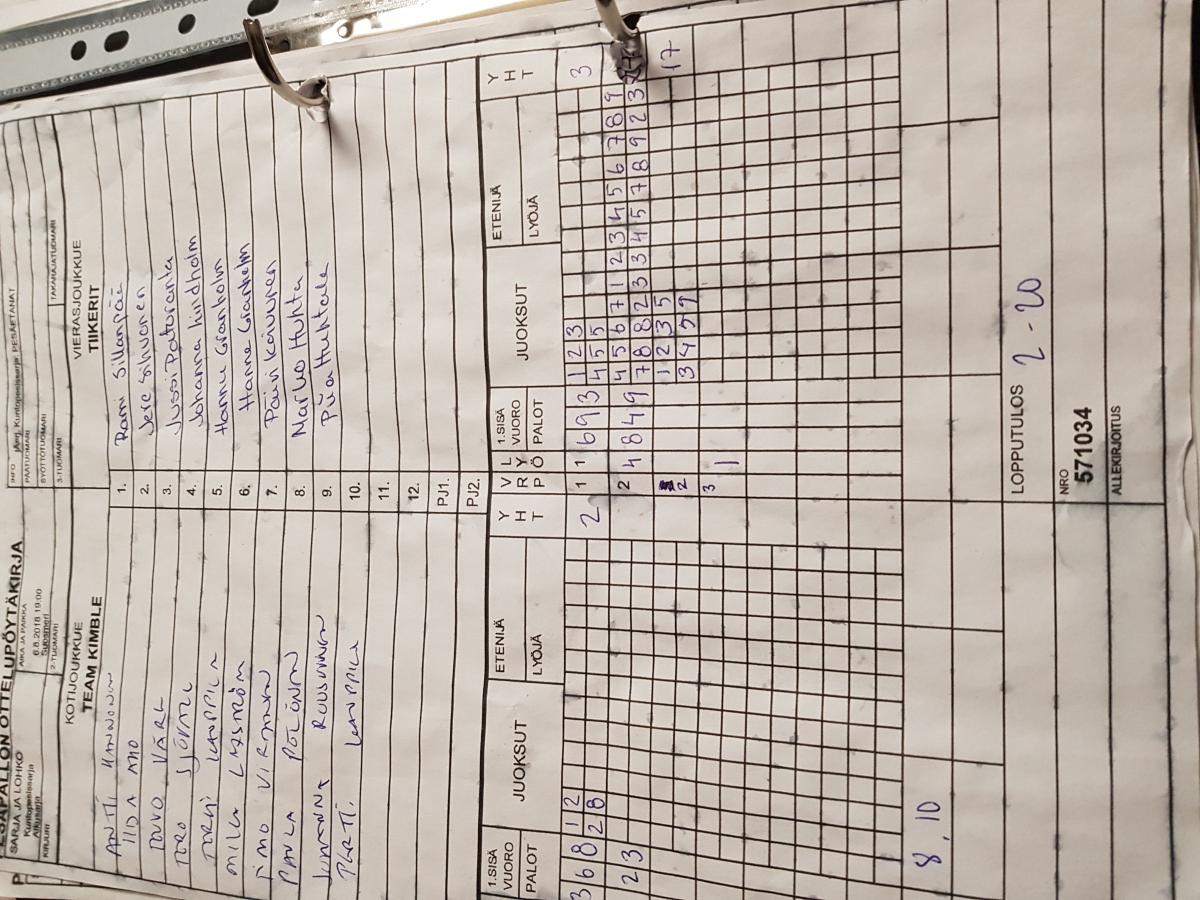 PESÄPALLON OTTELUPÖYTÄKIRJA
SARJA JA LOHKO
Kuntopesissarja
Alkusarja
AIKA JA PAIKKA
6.8.2018 19:00
Suosmeri
INFO
Kuntopesissarja: PESAETANAT
KIRJURI
2-TUOMARI
PÄÄTUOMARI
SYÖTTÖTUOMARI
3-TUOMARI
TAKARAJATUOMARI
KOTIJOUKKUE
TEAM KIMBLE
VIERASJOUKKUE
TIIKERIT
ANTTI HANNONIN 1. Rami Sillanpää
IIDA AHO 2. Jere Sihvonen
TOUVO VÄRE 3. Jussi Patoranta
TERO 4. Johanna Lindholm
TOMI KAUPPILA 5. Hannu Granholm
MILLA LASTRÖM 6. Hanne Granholm
TIMO VIRTANEN 7. Päivi Koivunen
PAULA POLÖNEN 8. Marko Huhta
9. Piia Huhtala
PERTTI KAUPPILA 10.
11.
12.
PJ1.
PJ2.
1.SISÄ VUORO PALOT JUOKSUT ETENIJÄ LYÖJÄ YHT VRP LYÖ 1.SISÄ VUORO PALOT JUOKSUT ETENIJÄ LYÖJÄ YHT
3 6 8 1 2 2 1 1 6 9 3 1 2 3 3
2 8 4 5 5
2 3 2 4 8 4 9 4 5 6 7 1 2 3 4 5 6 7 8 9
7 8 8 2 3 3 4 5 7 8 9 2 3
2 1 2 3 5 17
3 4 5 9
3 1
8, 10
LOPPUTULOS 2 - 20
NRO
571034
ALLEKIRJOITUS